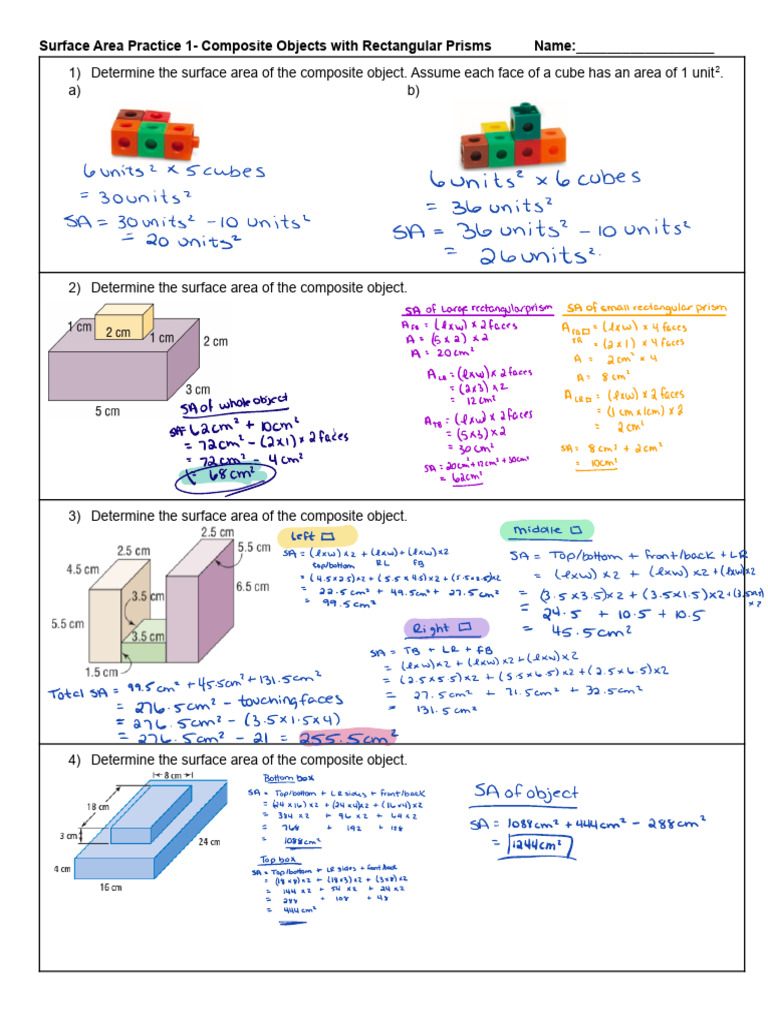 Surface Area Practice 1- Composite Objects with Rectangular Prisms Name:__________________
1) Determine the surface area of the composite object. Assume each face of a cube has an area of 1 unit².
a) b)
6 units² x 5 cubes
= 30 units²
SA = 30 units² - 10 units²
= 20 units²
6 units² x 6 cubes
= 36 units²
SA = 36 units² - 10 units²
= 26 units².
2) Determine the surface area of the composite object.
1 cm
2 cm
1 cm
2 cm
3 cm
5 cm
SA of whole object
SA = 62cm² + 10cm²
= 72cm² - (2x1) x 2 faces
= 72cm² - 4cm²
= 68cm²
SA of Large rectangular prism
A_FB = (l x w) x 2 faces
A = (5 x 2) x 2
A = 20cm²
A_LR = (l x w) x 2 faces
= (2x3) x 2
= 12cm²
A_TB = (l x w) x 2 faces
= (5 x 3) x 2
= 30cm²
SA = 20cm² + 12cm² + 30cm²
= 62cm²
SA of small rectangular prism
= (l x w) x 4 faces
= (2 x 1) x 4 faces
A = 2cm² x 4
A = 8cm²
A_LR = (l x w) x 2 faces
= (1cm x 1cm) x 2
= 2cm²
SA = 8cm² + 2cm²
= 10cm²
3) Determine the surface area of the composite object.
2.5 cm
2.5 cm
5.5 cm
4.5 cm
3.5 cm
6.5 cm
5.5 cm
3.5 cm
1.5 cm
Left
SA = (l x w) x 2 + (l x w) + (l x w) x 2
top/bottom RL FB
= (4.5 x 2.5) x 2 + (5.5 x 4.5) x 2 + (5.5 x 2.5) x 2
= 22.5cm² + 49.5cm² + 27.5cm²
= 99.5cm²
middle
SA = Top/bottom + front/back + LR
= (l x w) x 2 + (l x w) x 2 + (l x w) x 2
= (3.5 x 3.5) x 2 + (3.5 x 1.5) x 2 + (3.5 x 1.5) x 2
= 24.5 + 10.5 + 10.5
= 45.5cm²
Right
SA = TB + LR + FB
= (l x w) x 2 + (l x w) x 2 + (l x w) x 2
= (2.5 x 5.5) x 2 + (5.5 x 6.5) x 2 + (2.5 x 6.5) x 2
= 27.5cm² + 71.5cm² + 32.5cm²
= 131.5cm²
Total SA = 99.5cm² + 45.5cm² + 131.5cm²
= 276.5cm² - touching faces
= 276.5cm² - (3.5 x 1.5 x 4)
= 276.5cm² - 21 = 255.5cm²
4) Determine the surface area of the composite object.
8 cm
18 cm
3 cm
24 cm
4 cm
16 cm
Bottom box
SA = Top/bottom + LR sides + front/back
= (24 x 16) x 2 + (24 x 4) x 2 + (16 x 4) x 2
= 384 x 2 + 96 x 2 + 64 x 2
= 768 + 192 + 128
= 1088cm²
Top box
SA = Top/bottom + LR sides + front/back
= (18 x 8) x 2 + (18 x 3) x 2 + (3 x 8) x 2
= 144 x 2 + 54 x 2 + 24 x 2
= 288 + 108 + 48
= 444cm²
SA of object
SA = 1088cm² + 444cm² - 288cm²
= 1244cm²